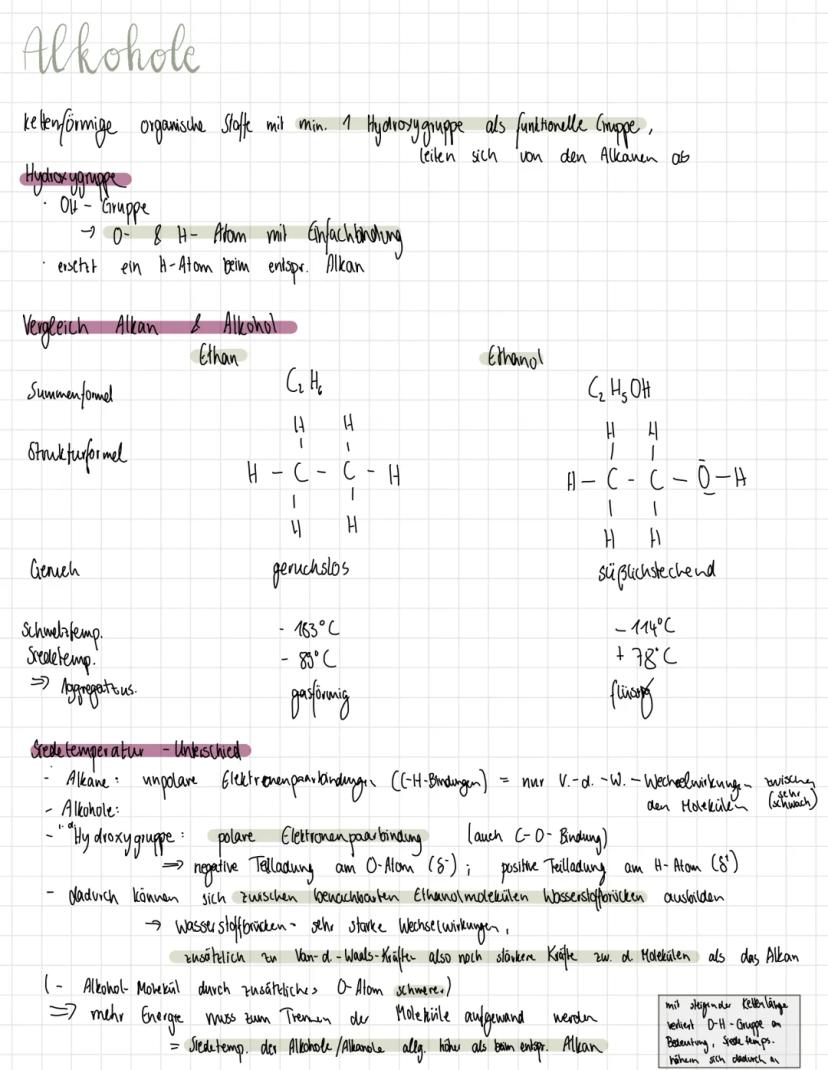 Alkohole
kettenförmige organische Stoffe mit min. 1 Hydroxygruppe als funktionelle Gruppe,
leiten sich von den Alkanen ab
Hydroxygruppe
· OH - Gruppe
→ O- & H- Atom mit Einfachbindung
· ersetzt ein H-Atom beim entspr. Alkan
Vergleich Alkan & Alkohol
Ethan Ethanol
Summenformel C₂H₆ C₂H₅OH
Strukturformel
H H H H
H - C - C - H H - C - C - O - H
H H H H
Geruch geruchslos süßlichstechend
Schmelztemp. - 183°C - 114°C
Siedetemp. - 89°C + 78°C
⇒ Aggregatzus. gasförmig flüssig
Siedetemperatur - Unterschied
- Alkane: unpolare Elektronenpaarbindungen (C-H-Bindungen) = nur V.-d.-W.-Wechselwirkungen zwischen
den Molekülen (sehr schwach)
- Alkohole:
- Hydroxygruppe: polare Elektronenpaarbindung (auch C-O-Bindung)
⇒ negative Teilladung am O-Atom (δ⁻); positive Teilladung am H-Atom (δ⁺)
- dadurch können sich zwischen benachbarten Ethanolmolekülen Wasserstoffbrücken ausbilden
→ Wasserstoffbrücken = sehr starke Wechselwirkungen,
zusätzlich zu Van-d.-Waals-Kräften also noch stärkere Kräfte zw. d. Molekülen als das Alkan
(- Alkohol-Molekül durch zusätzliches O-Atom schwerer)
⇒ mehr Energie muss zum Trennen der Moleküle aufgewand werden
= Siedetemp. der Alkohole/Alkanole allg. höher als beim entspr. Alkan
mit steigender Kettenlänge
verliert O-H-Gruppe an
Bedeutung, Siedetemps.
nähern sich dadurch an